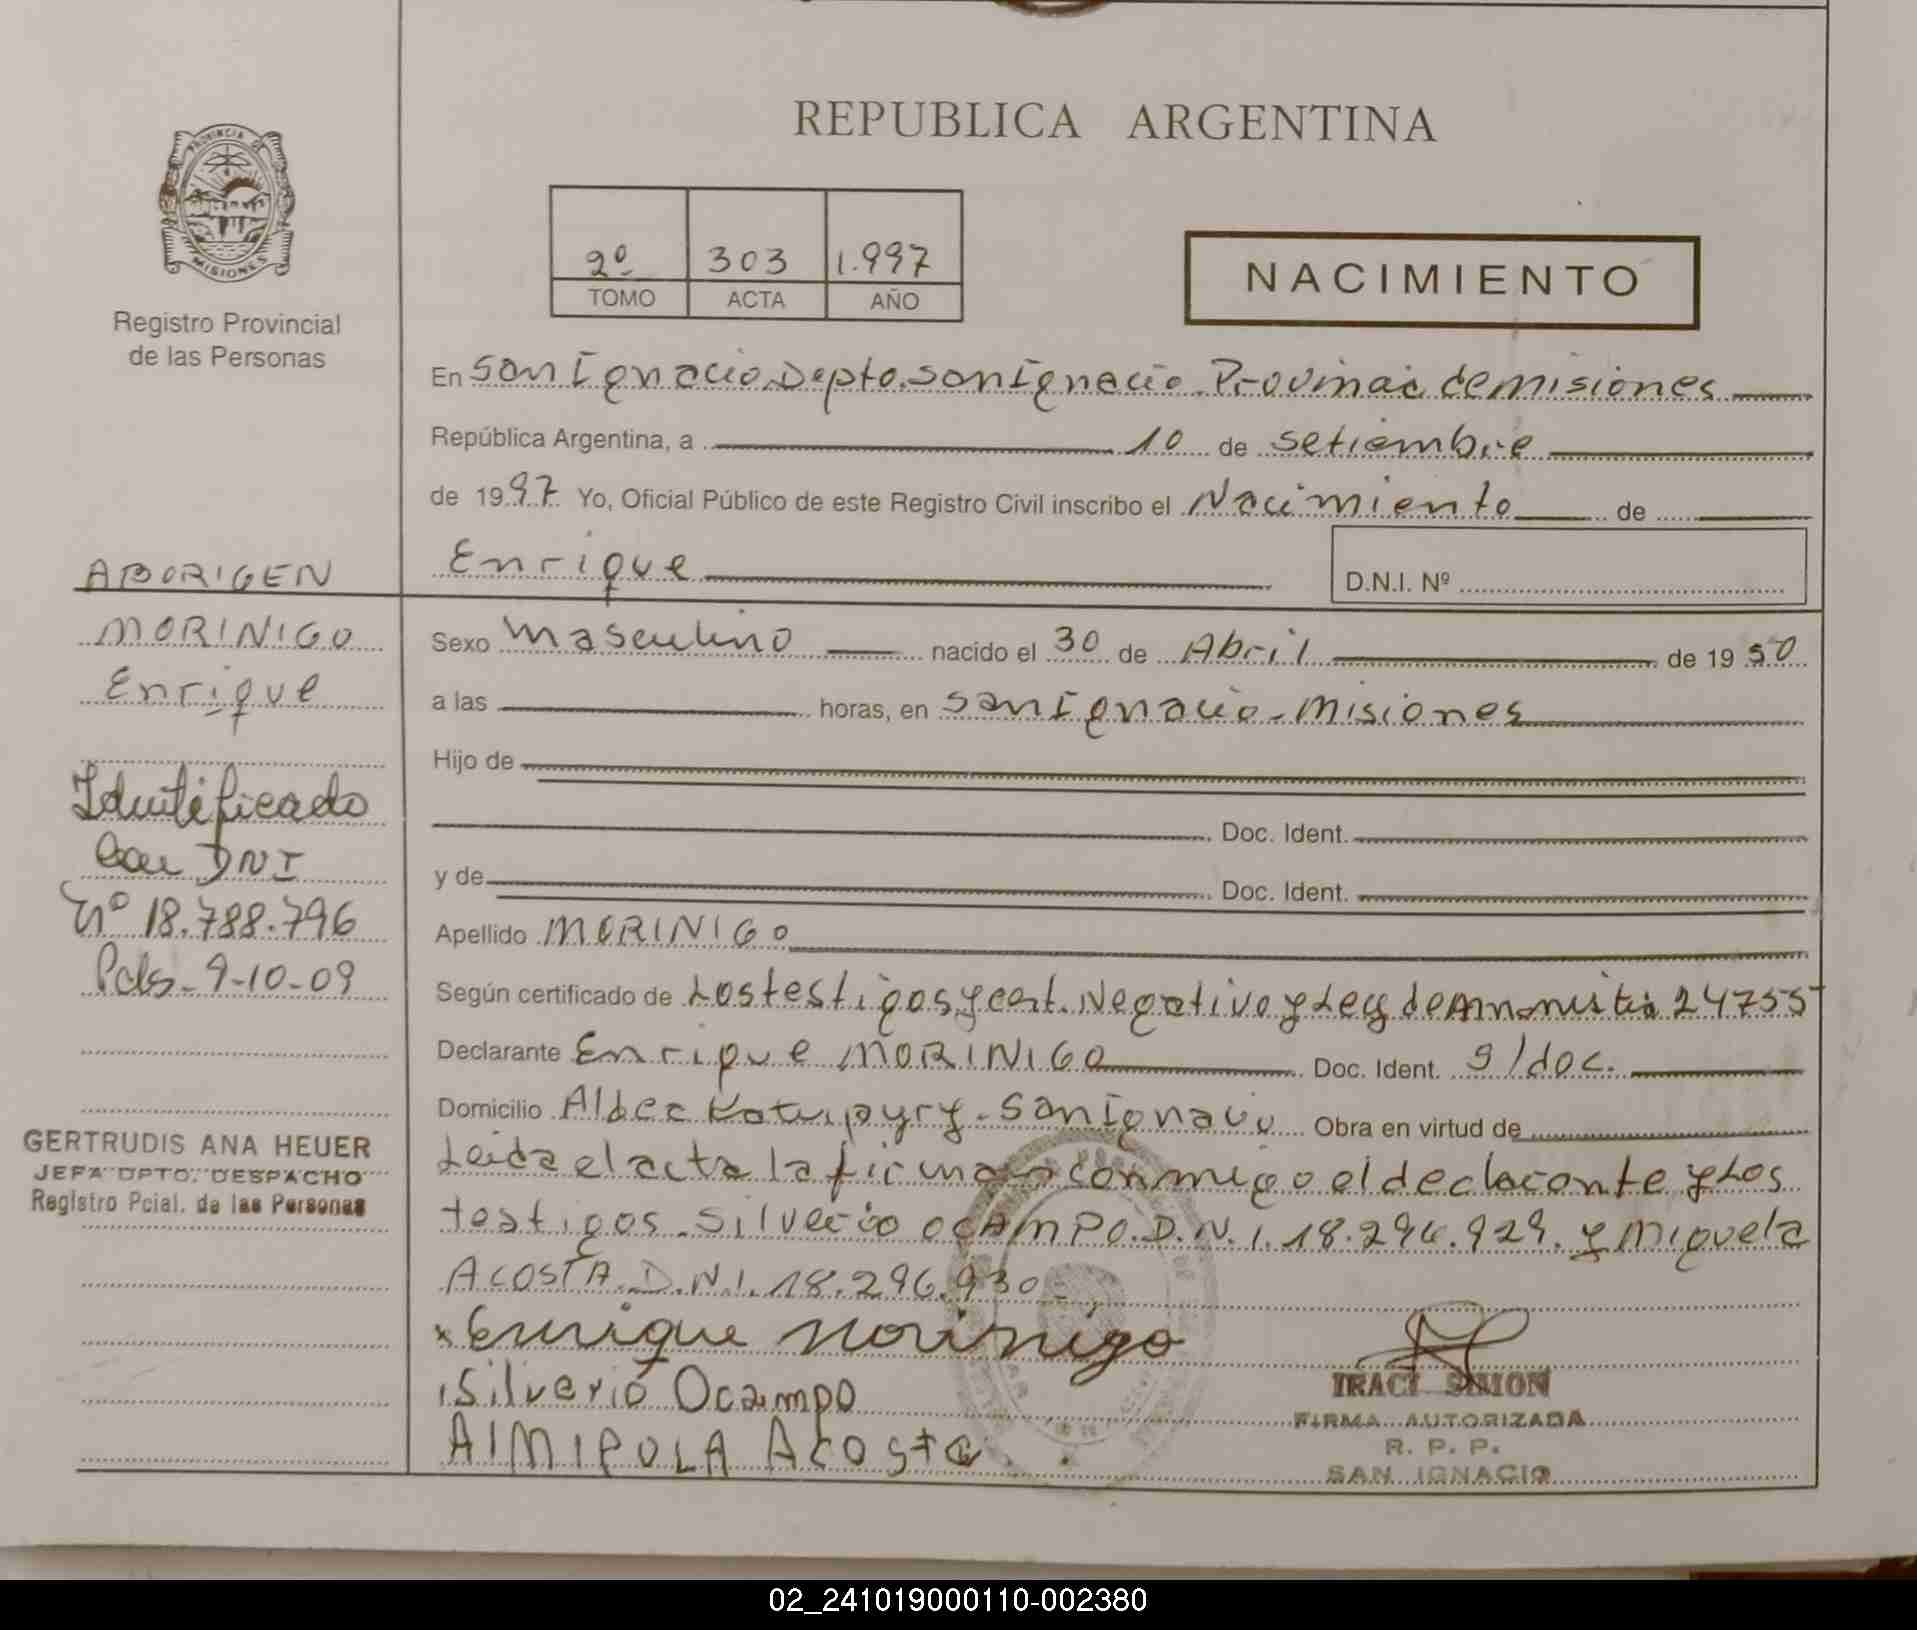 REPUBLICA ARGENTINA
PROVINCIA DE MISIONES
Registro Provincial
de las Personas
2º 303 1.997
TOMO ACTA AÑO
NACIMIENTO
En San Ignacio. Depto. San Ignacio. Provincia de Misiones
República Argentina, a 10 de Setiembre
de 1997 Yo, Oficial Público de este Registro Civil inscribo el Nacimiento de
Enrique
D.N.I. Nº
ABORIGEN
MORINIGO
Enrique
Identificado
Con DNI
Nº 18.788.796
Pdas-9-10-09
GERTRUDIS ANA HEUER
JEFA DPTO. DESPACHO
Registro Pcial. de las Personas
Sexo Masculino nacido el 30 de Abril de 1950
a las horas, en San Ignacio-Misiones
Hijo de
Doc. Ident.
y de Doc. Ident.
Apellido MORINIGO
Según certificado de Los testigos y cert. Negativo y Ley de Amnistia 24755
Declarante Enrique MORINIGO Doc. Ident. S/doc.
Domicilio Aldea Katupyry-San Ignacio Obra en virtud de
Leida el acta la firman conmigo el declarante y los
testigos. Silverio OCAMPO. D.N.I. 18.296.929. y Miguela
ACOSTA. D.N.I. 18.296.930
x Enrique Morinigo
Silverio Ocampo
Acosta
IRACI SIMON
FIRMA AUTORIZADA
R. P. P.
SAN IGNACIO
02_241019000110-002380